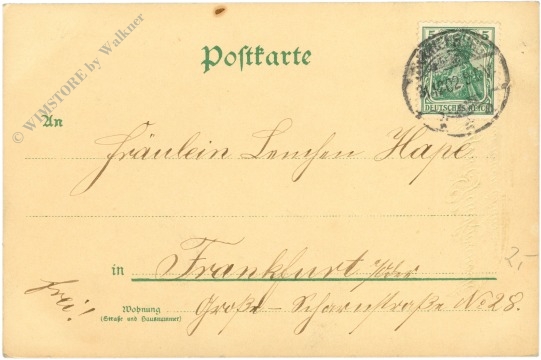 © WIMSTORE by Walkner
Postkarte
5 5
DEUTSCHES REICH
An
Fräulein Lenchen Hape
in Frankfurt a/Oder
frei!
Wohnung
(Straße und Hausnummer)
Große-Scharnstraße No 28.
2,-